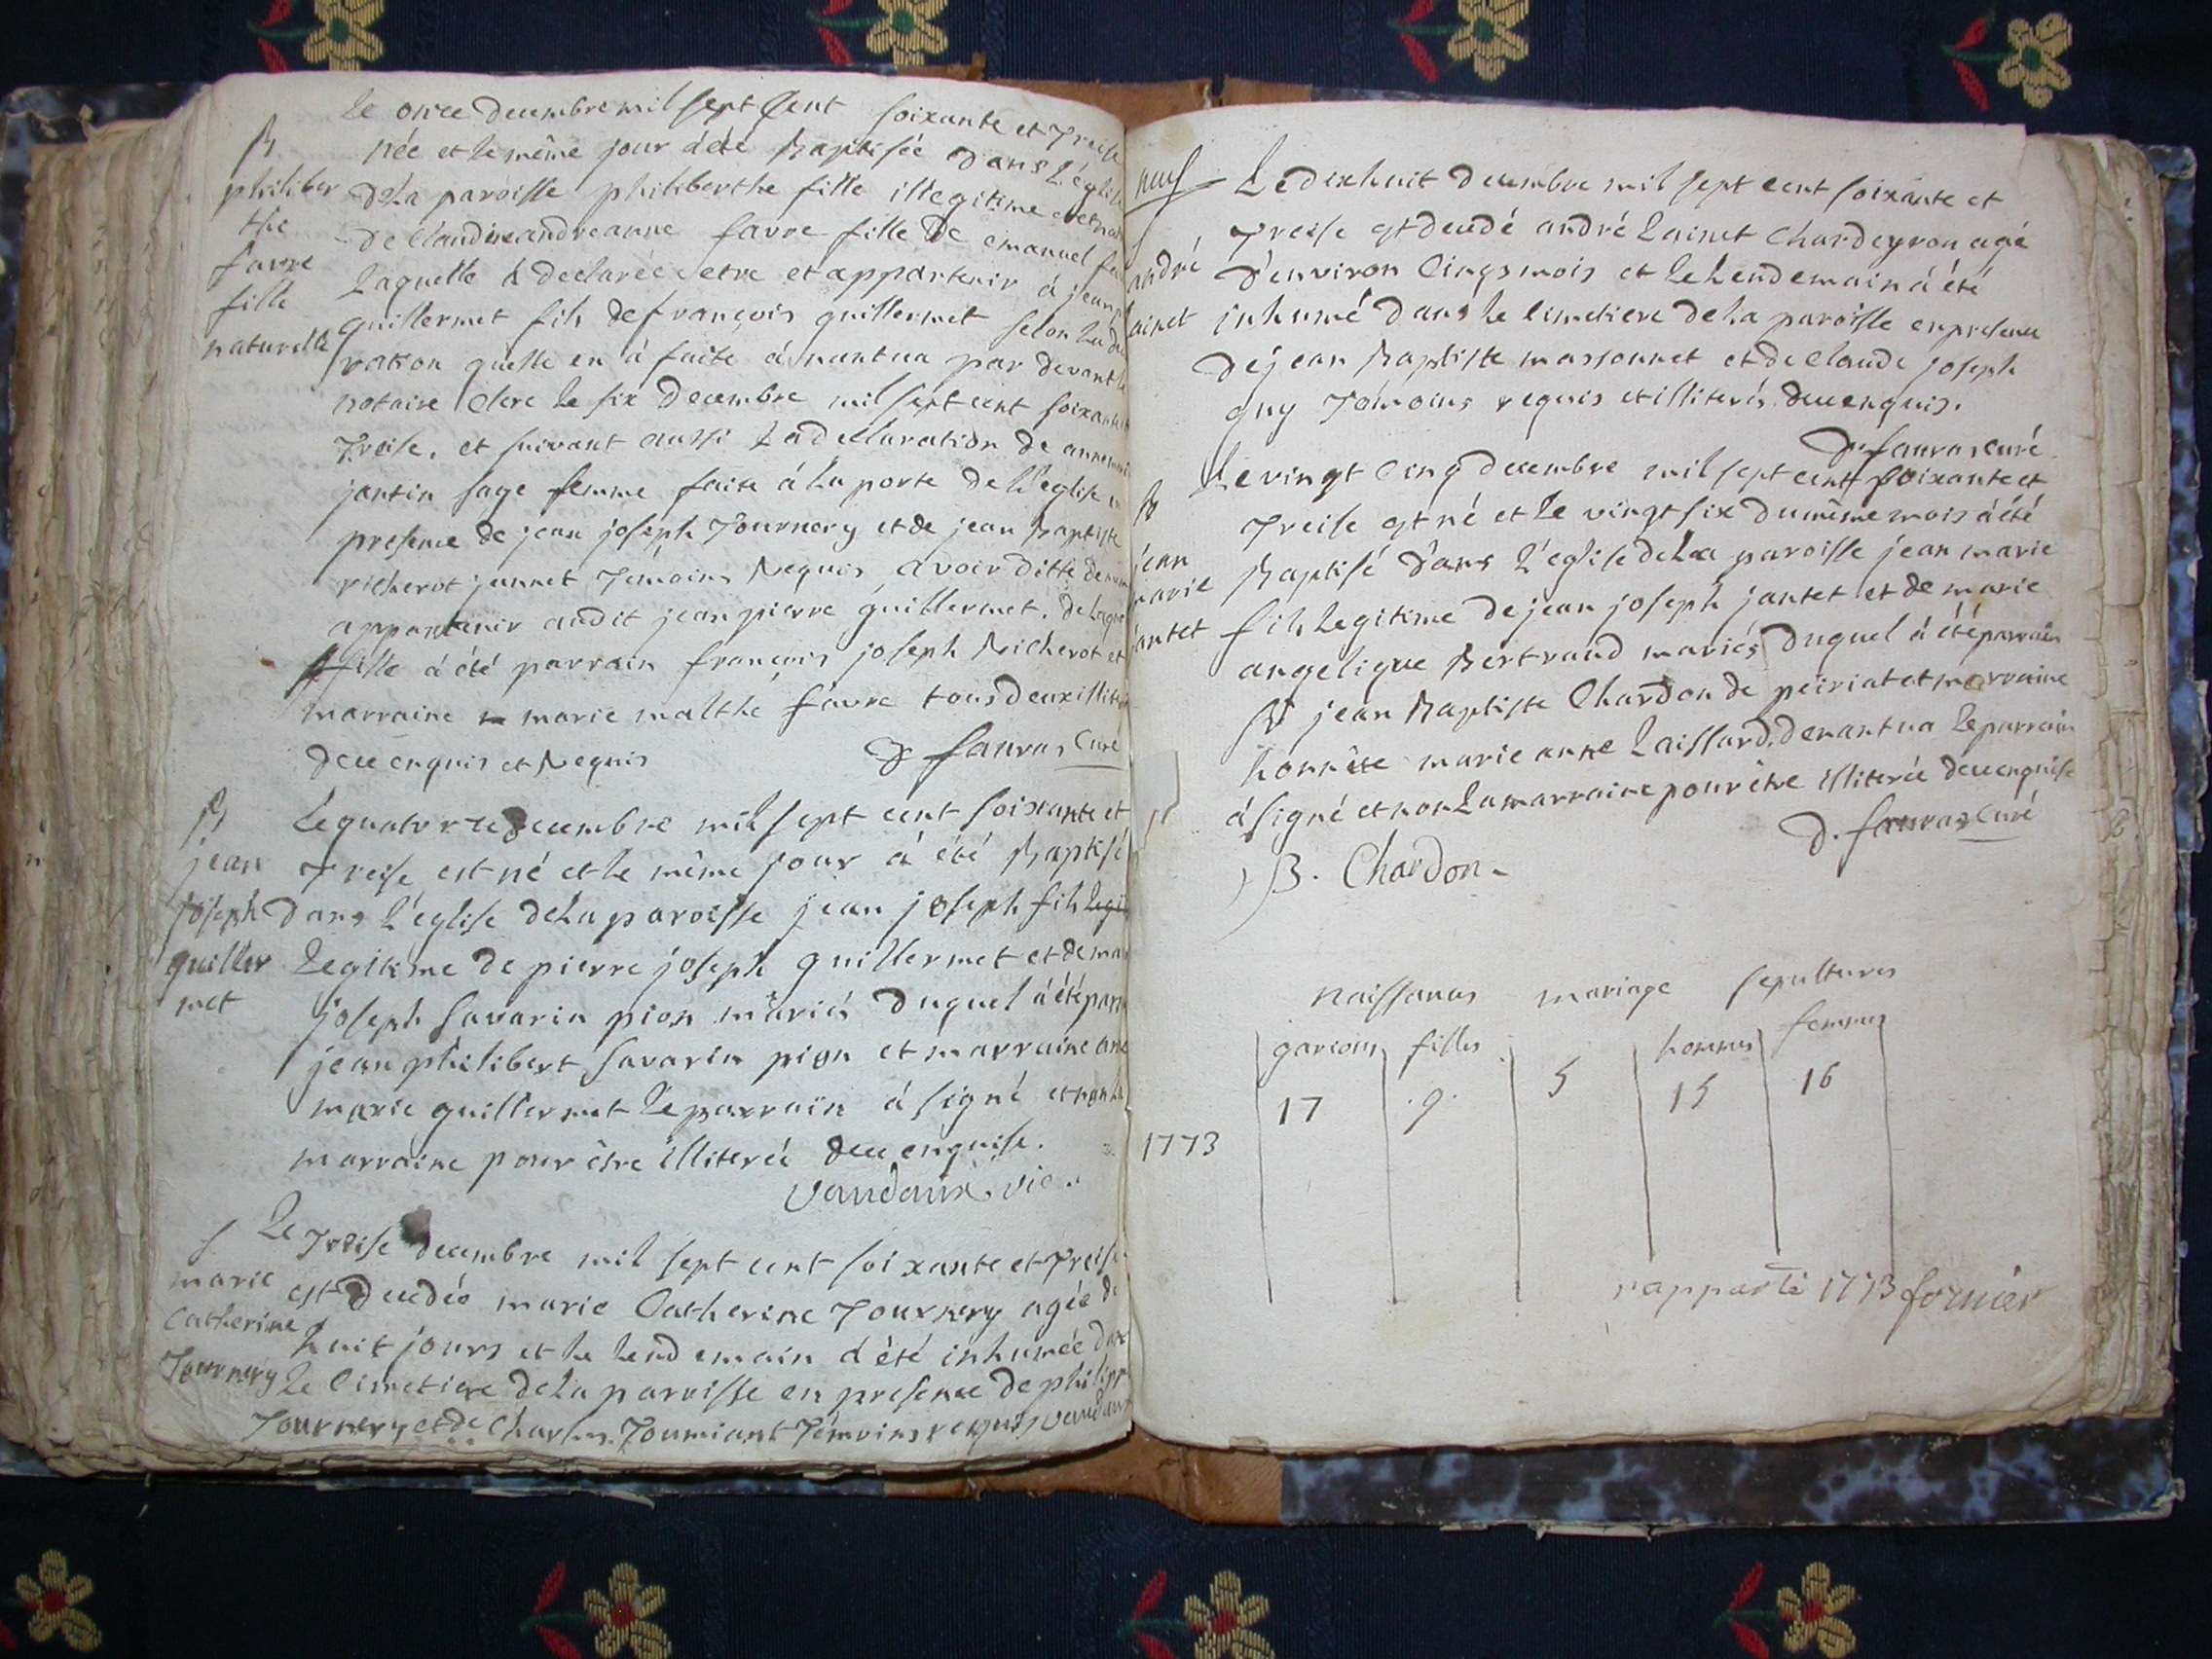 le onze decembre mil sept cent soixante et treise
née et le même jour a été baptisée dans l'église
de la paroisse philiberthe fille illegitime et
de Claudine andreanne favre fille de emanuel
laquelle a declarée etre et appartenir à jean
guillermet fils de françois guillermet selon la
ration quelle en à faite à nantua par devant
notaire clerc le six decembre mil sept cent soixante
treise, et suivant aussi la declaration de anne
jantin sage femme faite à la porte de l'eglise
presence de jean joseph Tournery et de jean baptiste
richerot junnet temoins requis avoir ditte
appartenir audit jean pierre guillermet. de
fille à été parrain françois joseph richerot et
marraine marie malthé favre tous deux
deu enquis et requis d fauvas curé
B
philiber
the
favre
fille
naturelle
Le quatorze decembre mil sept cent soixante et
treise est né et le même jour à été baptisé
dans l'eglise de la paroisse jean joseph fils
legitime de pierre joseph guillermet et de
joseph savarin pion mariés duquel à été
jean philibert savarin pion et marraine
marie guillermet le parrain à signé et non la
marraine pour être illiterée deu enquise.
vaudaux vic..
B
jean
joseph
guiller
met
Le treise decembre mil sept cent soixante et treise
est decedée marie Catherine Tournery agée de
huit jours et le lendemain a été inhumée dans
le cimetiere de la paroisse en presence de
Tournery et de Charles Toumiant témoins requis
S
marie
Catherine
Tournery
Le dixhuit decembre mil sept cent soixante et
treise est decedé andré lainet Chardeyron agé
d'environ cinqs mois et le lendemain à été
inhumé dans le cimetiere de la paroisse en presence
de jean baptiste massonnet et de Claude joseph
guy temoins requis et illiterés deu enquis.
d. fauvas curé
andré
lainet
Le vingt cinq decembre mil sept cent soixante et
treise est né et le vingt six du même mois à été
baptisé dans l'eglise de la paroisse jean marie
fils legitime de jean joseph jantet et de marie
angelique bertrand mariés duquel à été parrain
jean baptiste Chardon de peiriat et marraine
honnête marie anne laissard de nantua le parrain
à signé et non la marraine pour être illiterée deu enquise
d. fauvas curé
B
jean
marie
jantet
JB. Chardon
naissances mariage sepultures
garçons filles hommes femmes
17 9 5 15 16
1773
rapporté 1773 fornier